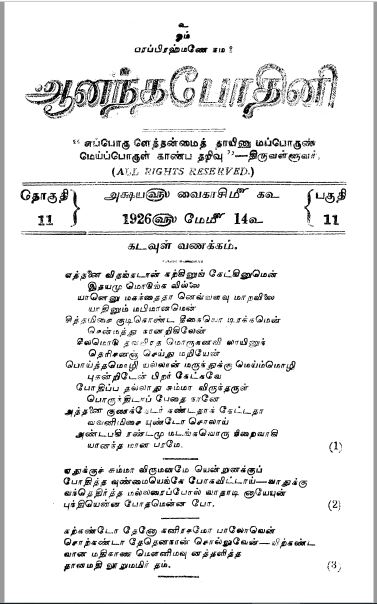 உ
ஓம்
பரப்பிரஹ்மணே நம:
ஆனந்தபோதினி
"எப்பொரு ளெத்தன்மைத் தாயினு மப்பொருண்
மெய்ப்பொருள் காண்ப தறிவு"—திருவள்ளுவர்.
(ALL RIGHTS RESERVED.)
தொகுதி 11
அக்ஷய௵ வைகாசி௴ ௧௨
1926௵ மே௴ 14௳
பகுதி 11
கடவுள் வணக்கம்.
எத்தனை விதங்கடான் கற்கினுங் கேட்கினுமென்
இதயமு மொடுங்க வில்லை
யானெனு மகந்தைதா னெவ்வளவு மாறவிலை
யாதினும் மபிமானமென்
சித்தமிசை குடிகொண்ட தீகையொ டிரக்கமென்
சென்மத்து நானறிகிலேன்
சீலமொடு தவவிரத மொருகனவி லாயினுந்
தெரிசனஞ் செய்து மறியேன்
பொய்த்தமொழி யல்லான் மருந்துக்கு மெய்ம்மொழி
புகன்றிடேன் பிறர் கேட்கவே
போதிப்ப தல்லாது சும்மா விருந்தருள்
பொருந்திடாப் பேதை நானே
அத்தனை குணக்கேடர் கண்டதாக் கேட்டதா
வவனிமிசை யுண்டோ சொலாய்
அண்டபகி ரண்டமு மடங்கவொரு நிறைவாகி
யானந்த மான பரமே. (1)
ஏதுக்குச் சும்மா விருமனமே யென்றுனக்குப்
போதித்த வுண்மையெங்கே போகவிட்டாய்—வாதுக்கு
வந்தெதிர்த்த மல்லரைப்போல் வாதாடி னாயேயுன்
புத்தியென்ன போதமென்ன போ. (2)
கற்கண்டோ தேனோ கனிரசமோ பாலோவென்
சொற்கண்டா தேதெனநான் சொல்லுவேன்—விற்கண்ட
வான மதிகாண மௌனிமவு னத்தளித்த
தானமதி லூறுமமிர் தம். (3)